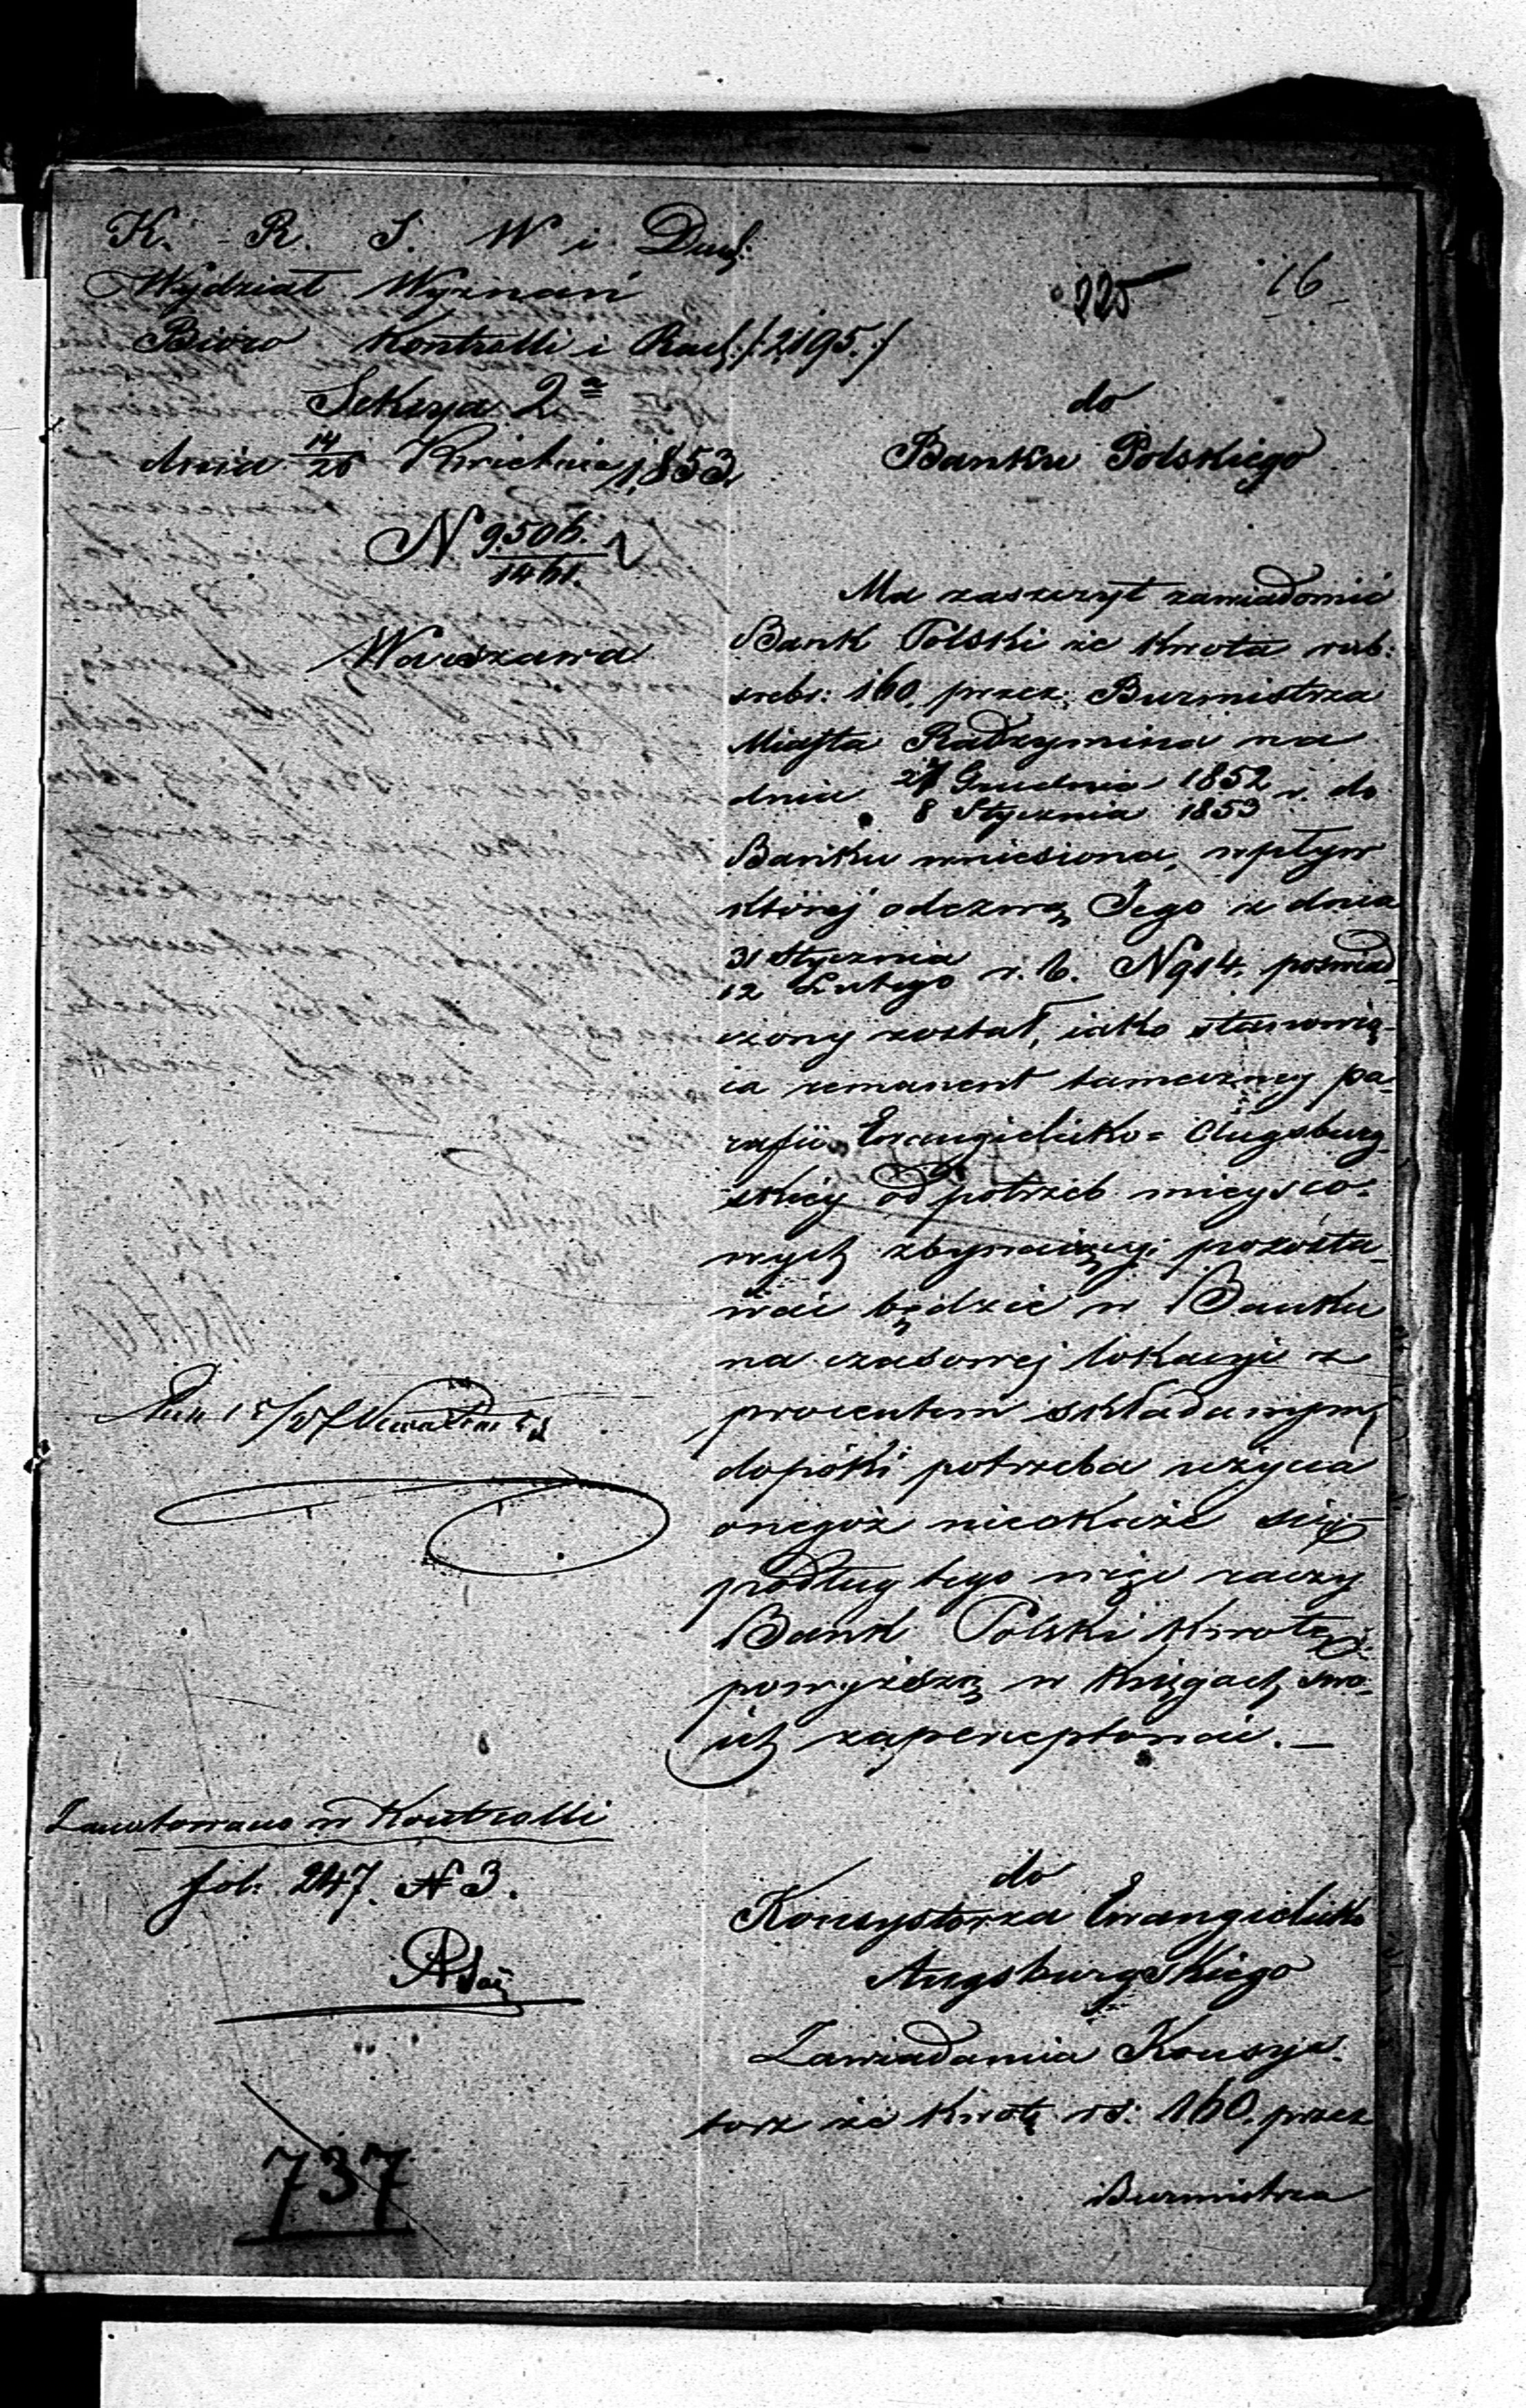 K. R. S. W i Duch:
Wydział Wyznań
Bióro Kontrolli i Rach: /:2,195.:/
Sekcya 2ª
dnia 14/26 Kwietnia 1853.
N 9.506./1461.
Warszawa
225
16
do
Banku Polskiego
Ma zaszczyt zawiadomić
Bank Polski że kwota rub:
srebr: 160, przez Burmistrza
Miasta Radzymina na
dniu 27 Grudnia 1852 / 8 Stycznia 1853 r. do
Banku wniesiona, wpływ
którój odezwą Jego z dnia
31 Stycznia / 12 Lutego r. b. N 914. poświad-
czony został, iako stanowią-
ca remanent tameczney pa-
rafii Ewangielicko= Augsburg-
skiey od potrzeb mieysco-
wych zbywaiący, pozosta-
wać będzie w Banku
na czasowej lokacyi z
procentem składowym,
dopóki potrzeba użycia
onegoż nieokaże się
podług tego więc raczy
Bank Polski kwotę
powyższą w księgach swo-
ich zapercyptować. —
Zanotowano w Kontrolli
fol. 247. N 3.
do
Konsystorza Ewangielicko
Augsburgskiego
Zawiadamia Konsys-
torz że kwotę rs: 160. przez
Burmistrza
737